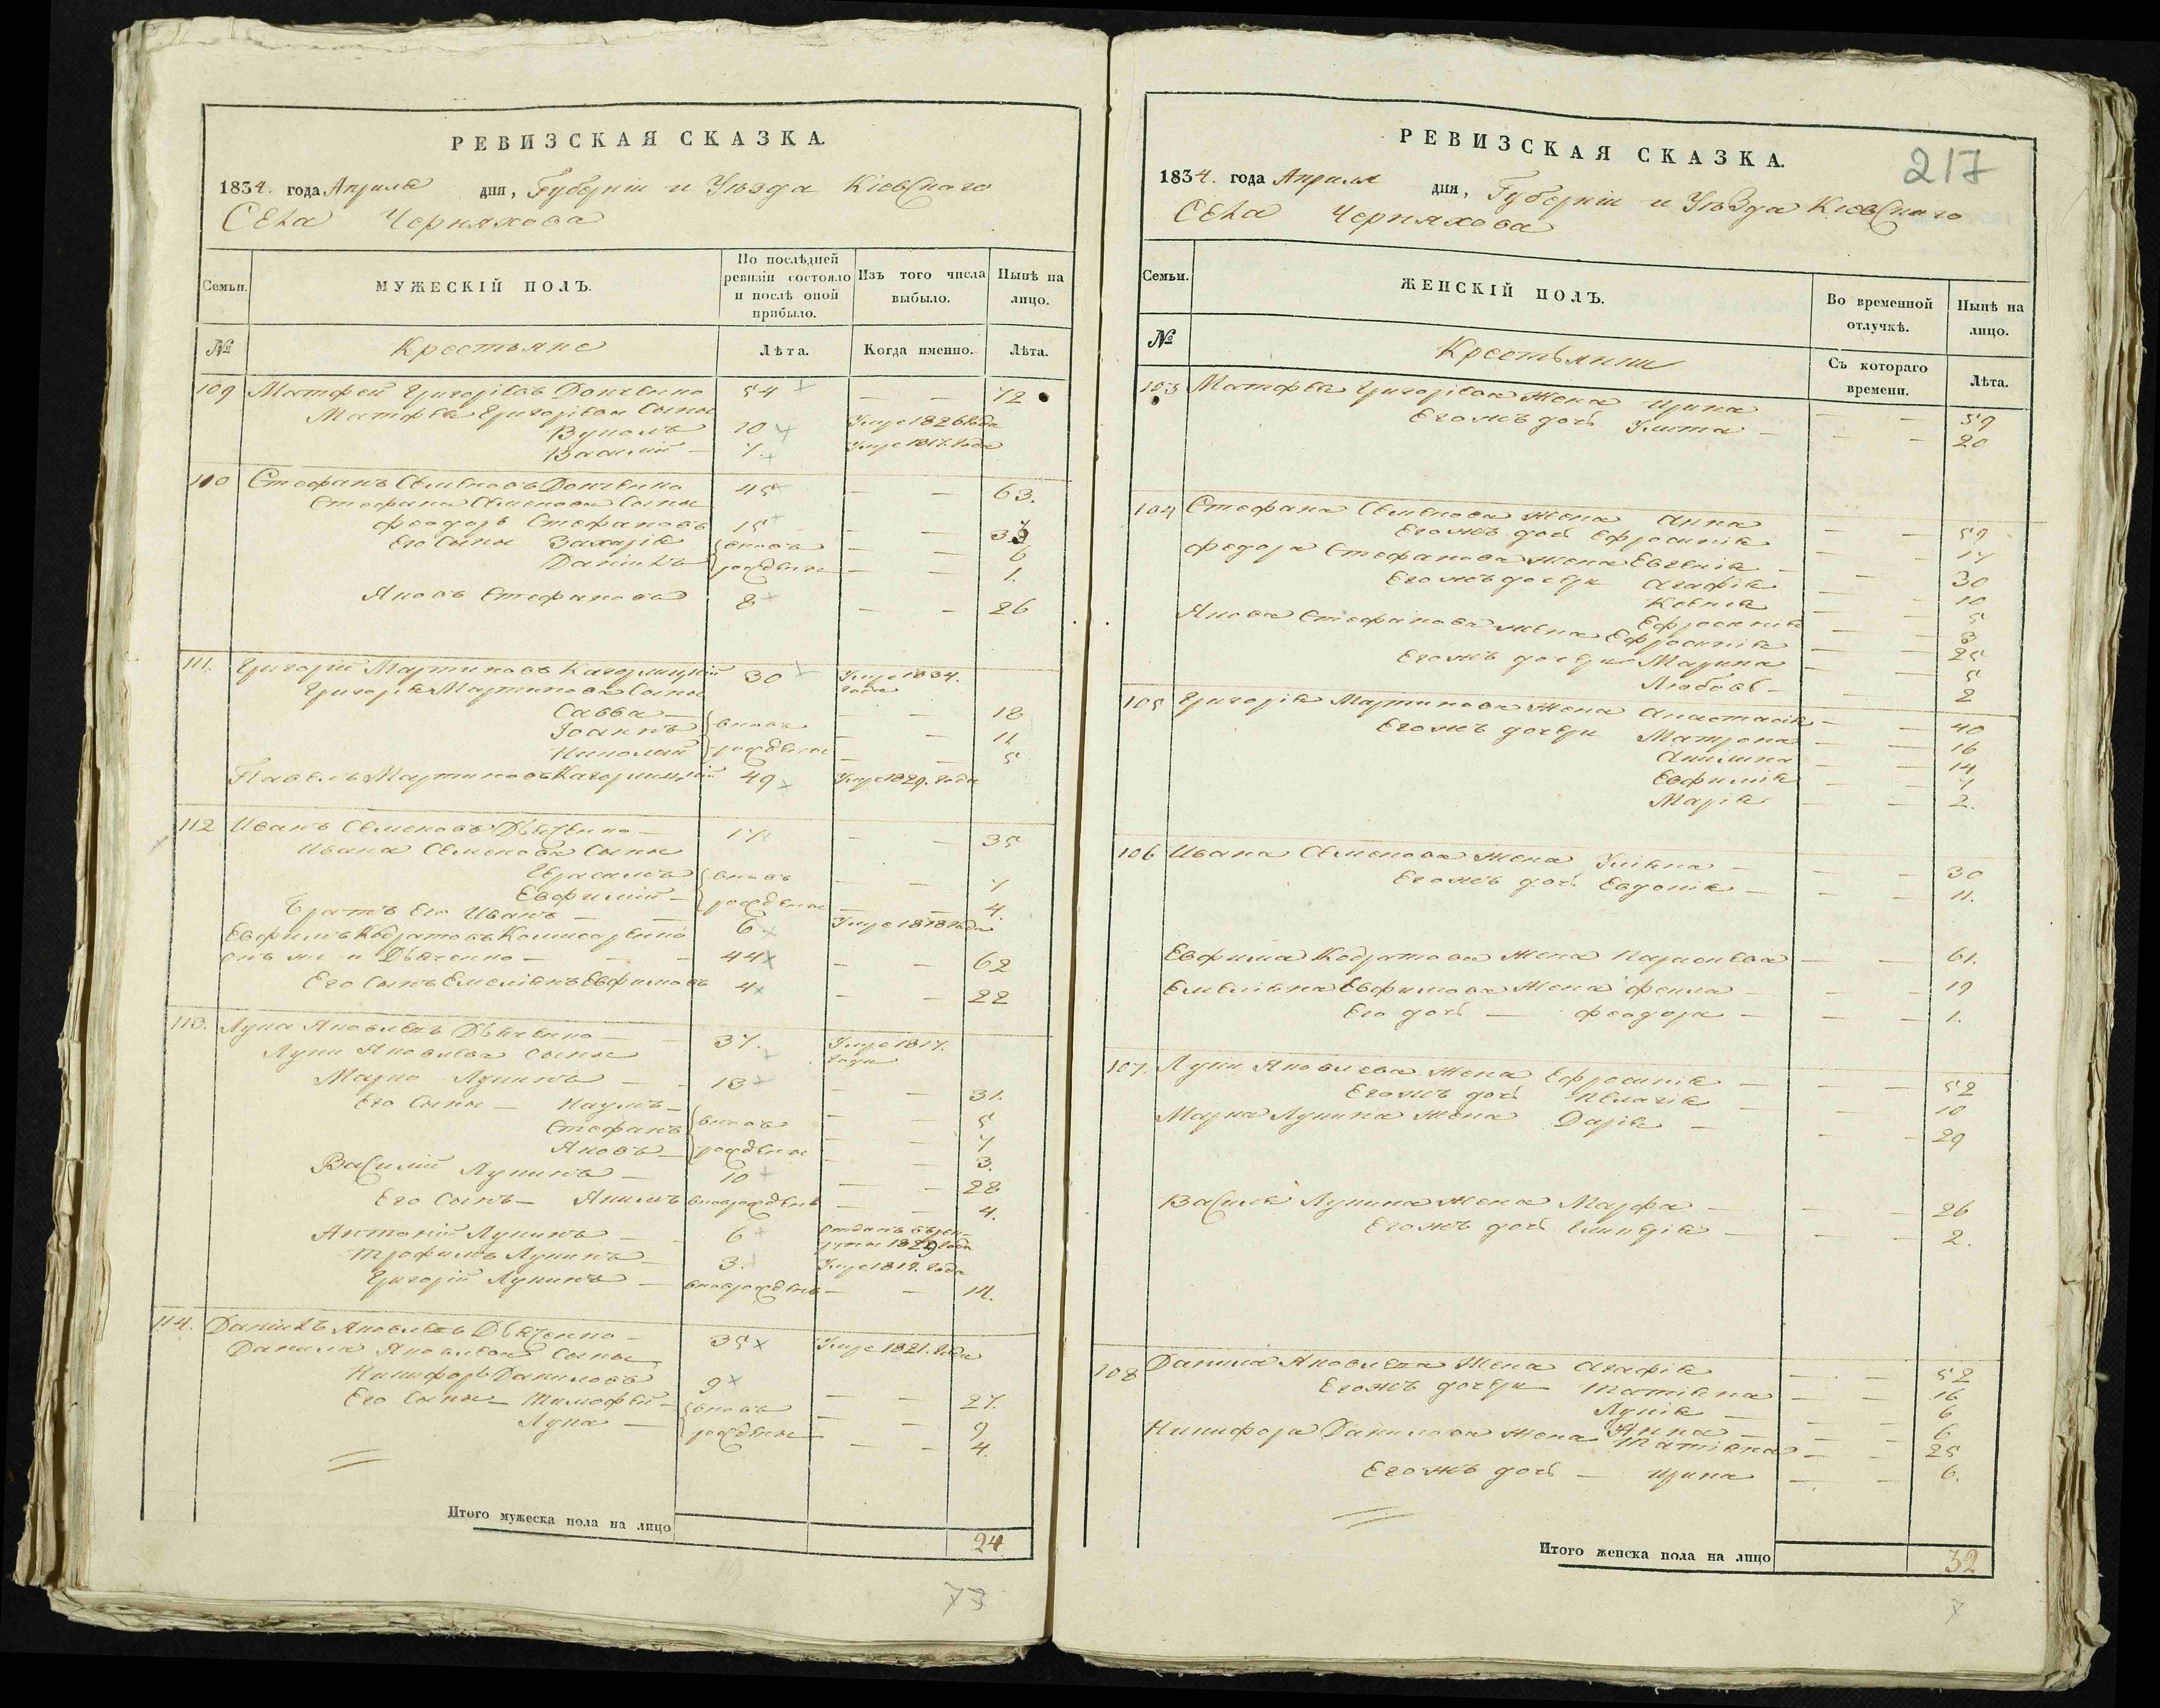 РЕВИЗСКАЯ СКАЗКА.
1834. года Апреля дня, Губернiи и Уезда Кiевскаго
Села Черняхова
Семьи. МУЖЕСКIЙ ПОЛЪ. По послѣдней ревизiи состояло и послѣ оной прибыло. Изъ того числа выбыло. Нынѣ на лицо.
№ Крестьяне Лѣта. Когда именно. Лѣта.
109 Матфей Григорiевъ 54 — — 72
Матфея Григорiева сыны
Вуколъ 10 Умре 1826 года
Василiй — 7. Умре года
110 Стефанъ Семеновъ 45 — — 63.
Стефана Семенова сыны
Феодоръ Стефановъ 15 — — 33
Его сыны Захарiя вновь — — 6
Данiилъ рожденные — — 1.
Яковъ Стефановъ 8 — — 26
111. Григорiй Мартиновъ Кагорлицкiй 30 Умре 1834.
года
Григорiя Мартинова сыны
Савва — вновь — — 18
Iоаннъ — — 11
Николай рожденные — — 5
Павелъ Мартиновъ Кагорлицкiй 49 Умре 1829. года
112 Иванъ Семеновъ Дяченко — 17 — — 35
Ивана Семенова сыны
Герасимъ вновь — — 7
Евфимiй — рожденные — — 4.
Братъ Его Иванъ — — 6 Умре 1818 года
Евфимъ Кодратовъ Комисаренко
онъ же и Дяченко — — — 44 — — 62
Его сынъ Емелiянъ Евфимовъ 4 — — 22
113. Лука Яковлевъ Дяченко — 37. Умре 1817.
года
Луки Яковлева сыны
Марко Лукинъ — — 13 — — 31.
Его сыны — Наумъ — вновь — — 5
Стефанъ — — 7
Яковъ — рожденные — — 3.
Василiй Лукинъ — 10 — — 28
Его сынъ — Якимъ вноврожденъ — — 4.
Антонiй Лукинъ — — 6 отданъ въ рек-
руты 1829 года
Трофимъ Лукинъ — 3. Умре 1819. года
Григорiй Лукинъ — вноврожденъ — — 14.
114. Данiилъ Яковлевъ Дяченко — 35 Умре 1821. года
Данила Яковлева сыны
Никифоръ Даниловъ 9 — — 27.
Его сыны — Тимофей — вновь — — 9
Лука — рожденные — — 4.
Итого мужеска пола на лицо 24
73
РЕВИЗСКАЯ СКАЗКА.
217
1834. года Апреля дня, Губернiи и Уезда Кiевскаго
Села Черняхова
Семьи. ЖЕНСКIЙ ПОЛЪ. Во временной отлучкѣ. Нынѣ на лицо.
№ Крестьянки Съ котораго времени. Лѣта.
103 Матфея Григорiева жена Ирина — — 59
Егожъ дочь Улита — — — 20
104 Стефана Семенова жена Анна — — 59
Егожъ дочь Ефросинiя — — 17
Федора Стефанова жена Евгенiя — — — 30
Егожъ дочери Агафiя — — 10
Ксенiя — — 5
Ефросинiя — — 3.
Якова Стефанова жена Ефросинiя — — 25
Егожъ дочери Марина — — 5
Любовь — — — 2
105 Григорiя Мартинова жена Анастасiя — — 40
Егожъ дочери Матрона — — 16
Акилина — — 14
Евфимiя — — 7
Марiя — — 2.
106 Ивана Семенова жена Улiяна — — — 30
Егожъ дочь Евдокiя — — — 11.
Евфима Кодратова жена Параскева — — 61.
Емелiяна Евфимова жена Фекла — — — 19
Его дочь — Феодора — — — 1.
107. Луки Яковлева жена Ефросинiя — — — 52
Егожъ дочь Пелагiя — — — 10
Марка Лукина жена Дарiя — — — 29
Василя Лукина жена Марфа — — — 26
Егожъ дочь — — — 2.
108 Данила Яковлева жена Агафiя — — 52
Егожъ дочери Татiяна — — 16
Лукiя — — — 6
Анна — — — 6
Никифора Данилова жена Татiяна — — 25
Егожъ дочь — Ирина — — 6.
Итого женска пола на лицо 32
7